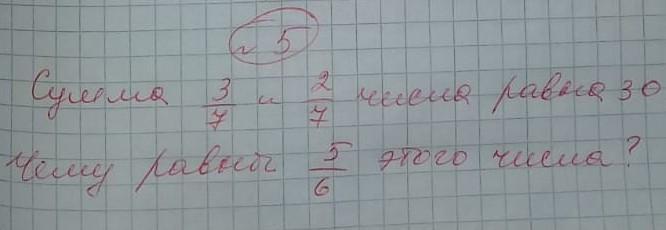 № 5
Сумма 3/7 и 2/7 числа равна 30
Чему равны 5/6 этого числа?